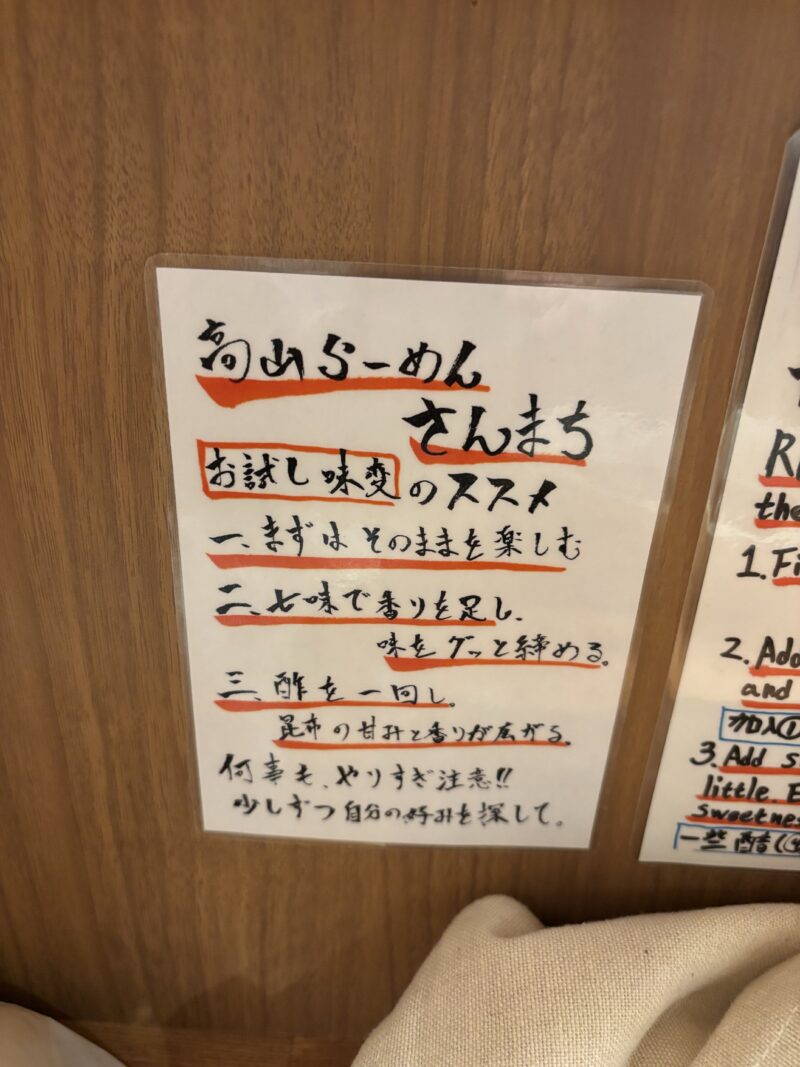 高山らーめん
さんまち
お試し味変のススメ
一、まずはそのままを楽しむ
二、七味で香りを足し、
味をグッと締める。
三、酢を一回し。
昆布の甘みと香りが広がる。
何事も、やりすぎ注意!!
少しずつ自分の好みを探して。
the
1. Fi
2. Add
and
加入①
3. Add s
little. E
sweetnes
一些 醋(④